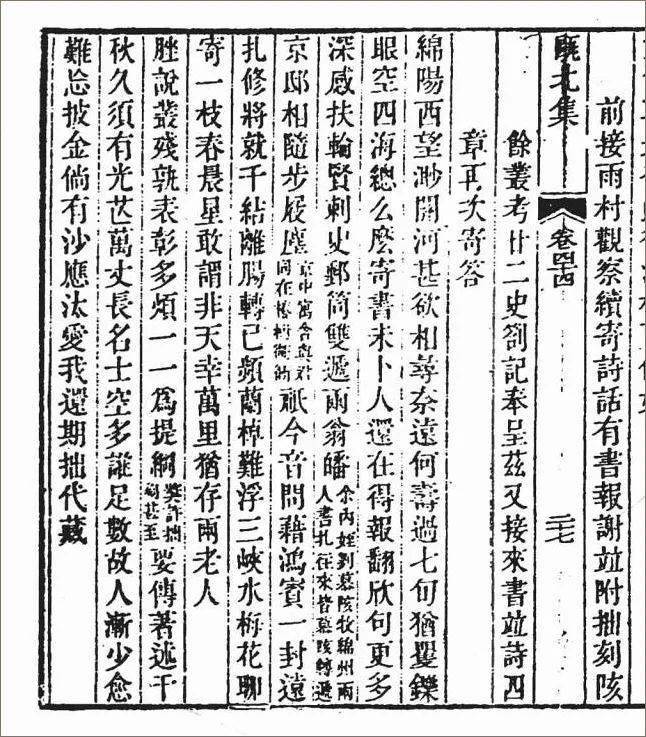 前接雨村觀察續寄詩話有書報謝竝附拙刻陔
甌北集
卷四十四
二十七
餘叢考廿二史劄記奉呈茲又接來書竝詩四
章再次寄答
綿陽西望渺關河甚欲相尋奈遠何壽過七旬猶矍鑠
眼空四海總么麼寄書未卜人還在得報翻欣句更多
深感扶輪賢刺史郵筒雙遞兩翁皤余內姪劉慕陔牧綿州兩人書札往來皆慕陔轉遞
京邸相隨步屧塵京中寓舍與君同在椿樹衚衕祇今音問藉鴻賓一封遠
札修將就千結離腸轉已頻蘭棹難浮三峽水梅花聊
寄一枝春晨星敢謂非天幸萬里猶存兩老人
脞說叢殘孰表彰多煩一一為提綱獎許拙詞甚至要傳著述千
秋久須有光芒萬丈長名士空多誰足數故人漸少愈
難忘披金倘有沙應汰愛我還期拙代藏